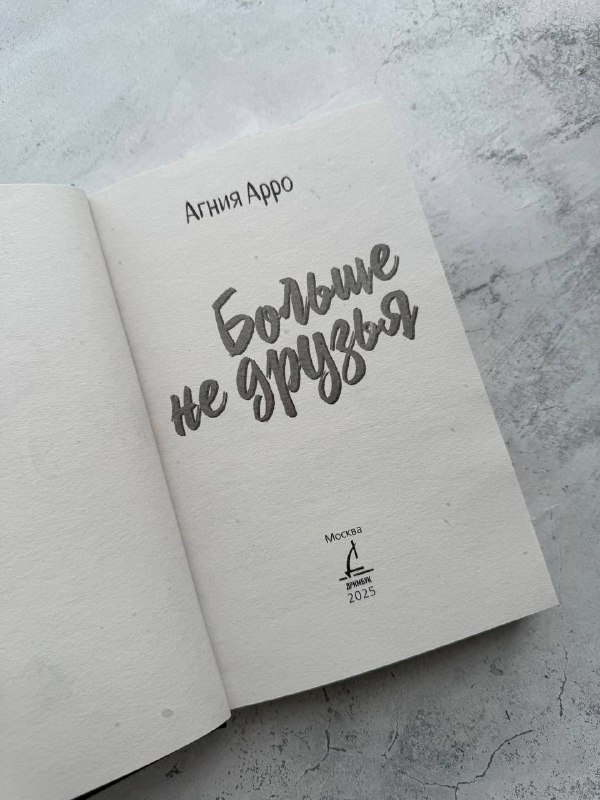 Агния Арро
Больше
не друзья
Москва
ДРИМБУК
2025